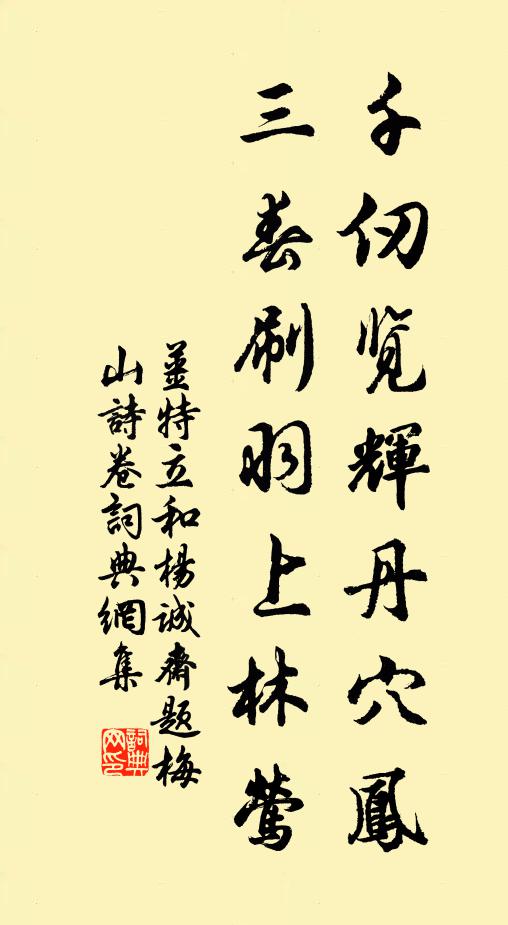 千仞览輝丹穴鳳
三春刷羽上林莺
姜特立和楊诚齋题梅
山詩卷詞典網集
詞典
网印